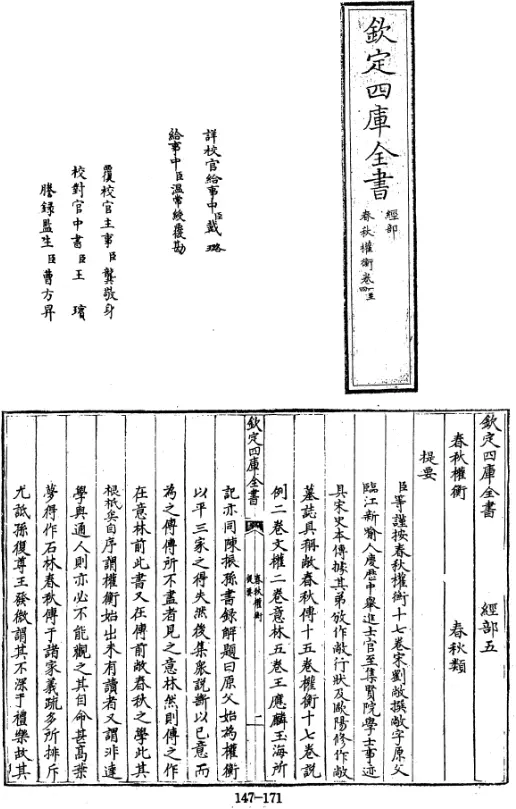 欽定四庫全書
經部
春秋權衡卷一至四
詳校官給事中臣戴璐
給事中臣溫常綬覆勘
覆校官主事臣龔敬身
校對官中書臣王瑸
謄録監生臣曹方昇
欽定四庫全書
經部五
春秋權衡
春秋類
提要
臣等謹按春秋權衡十七卷宋劉敞撰敞字原父
臨江新喻人慶歴中舉進士官至集賢院學士事迹
具宋史本傳據其弟攽作敞行狀及歐陽修作敞
墓誌具稱敞春秋傳十五卷權衡十七卷説
例二卷文權二卷意林五卷王應麟玉海所
欽定四庫全書
春秋權衡
提要
一
記亦同陳振孫書録解題曰原父始為權衡
以平三家之得失然後集衆説斷以已意而
為之傳傳所不盡者見之意林然則傳之作
在意林前此書又在傳前敞春秋之學此其
根柢矣自序謂權衡始出未有讀者又謂非達
學與通人則亦必不能觀之其自命甚高葉
夢得作石林春秋傳于諸家義疏多所排斥
尤詆孫復尊王發微謂其不深于禮樂故其
147-171